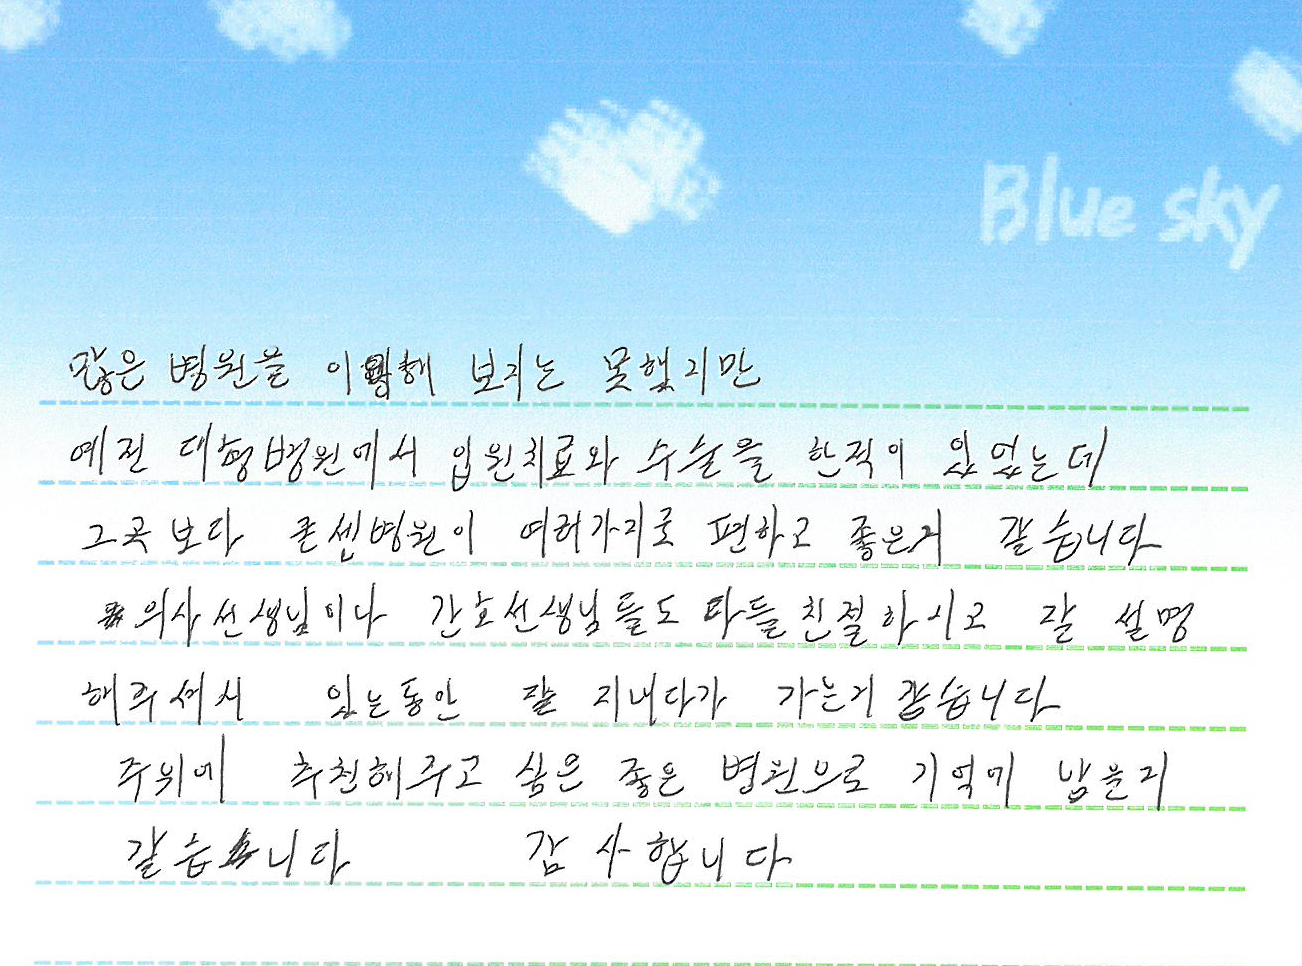 Blue sky
많은 병원을 이용해 보지는 못했지만
예전 대형병원에서 입원치료와 수술을 한적이 있었는데
그곳보다 존센병원이 여러가지로 편하고 좋은거 같습니다
의사선생님이나 간호선생님들도 다들친절하시고 잘 설명
해주셔서 있는동안 잘 지내다가 가는거 같습니다
주위에 추천해주고 싶은 좋은 병원으로 기억에 남을거
같습니다 감사합니다